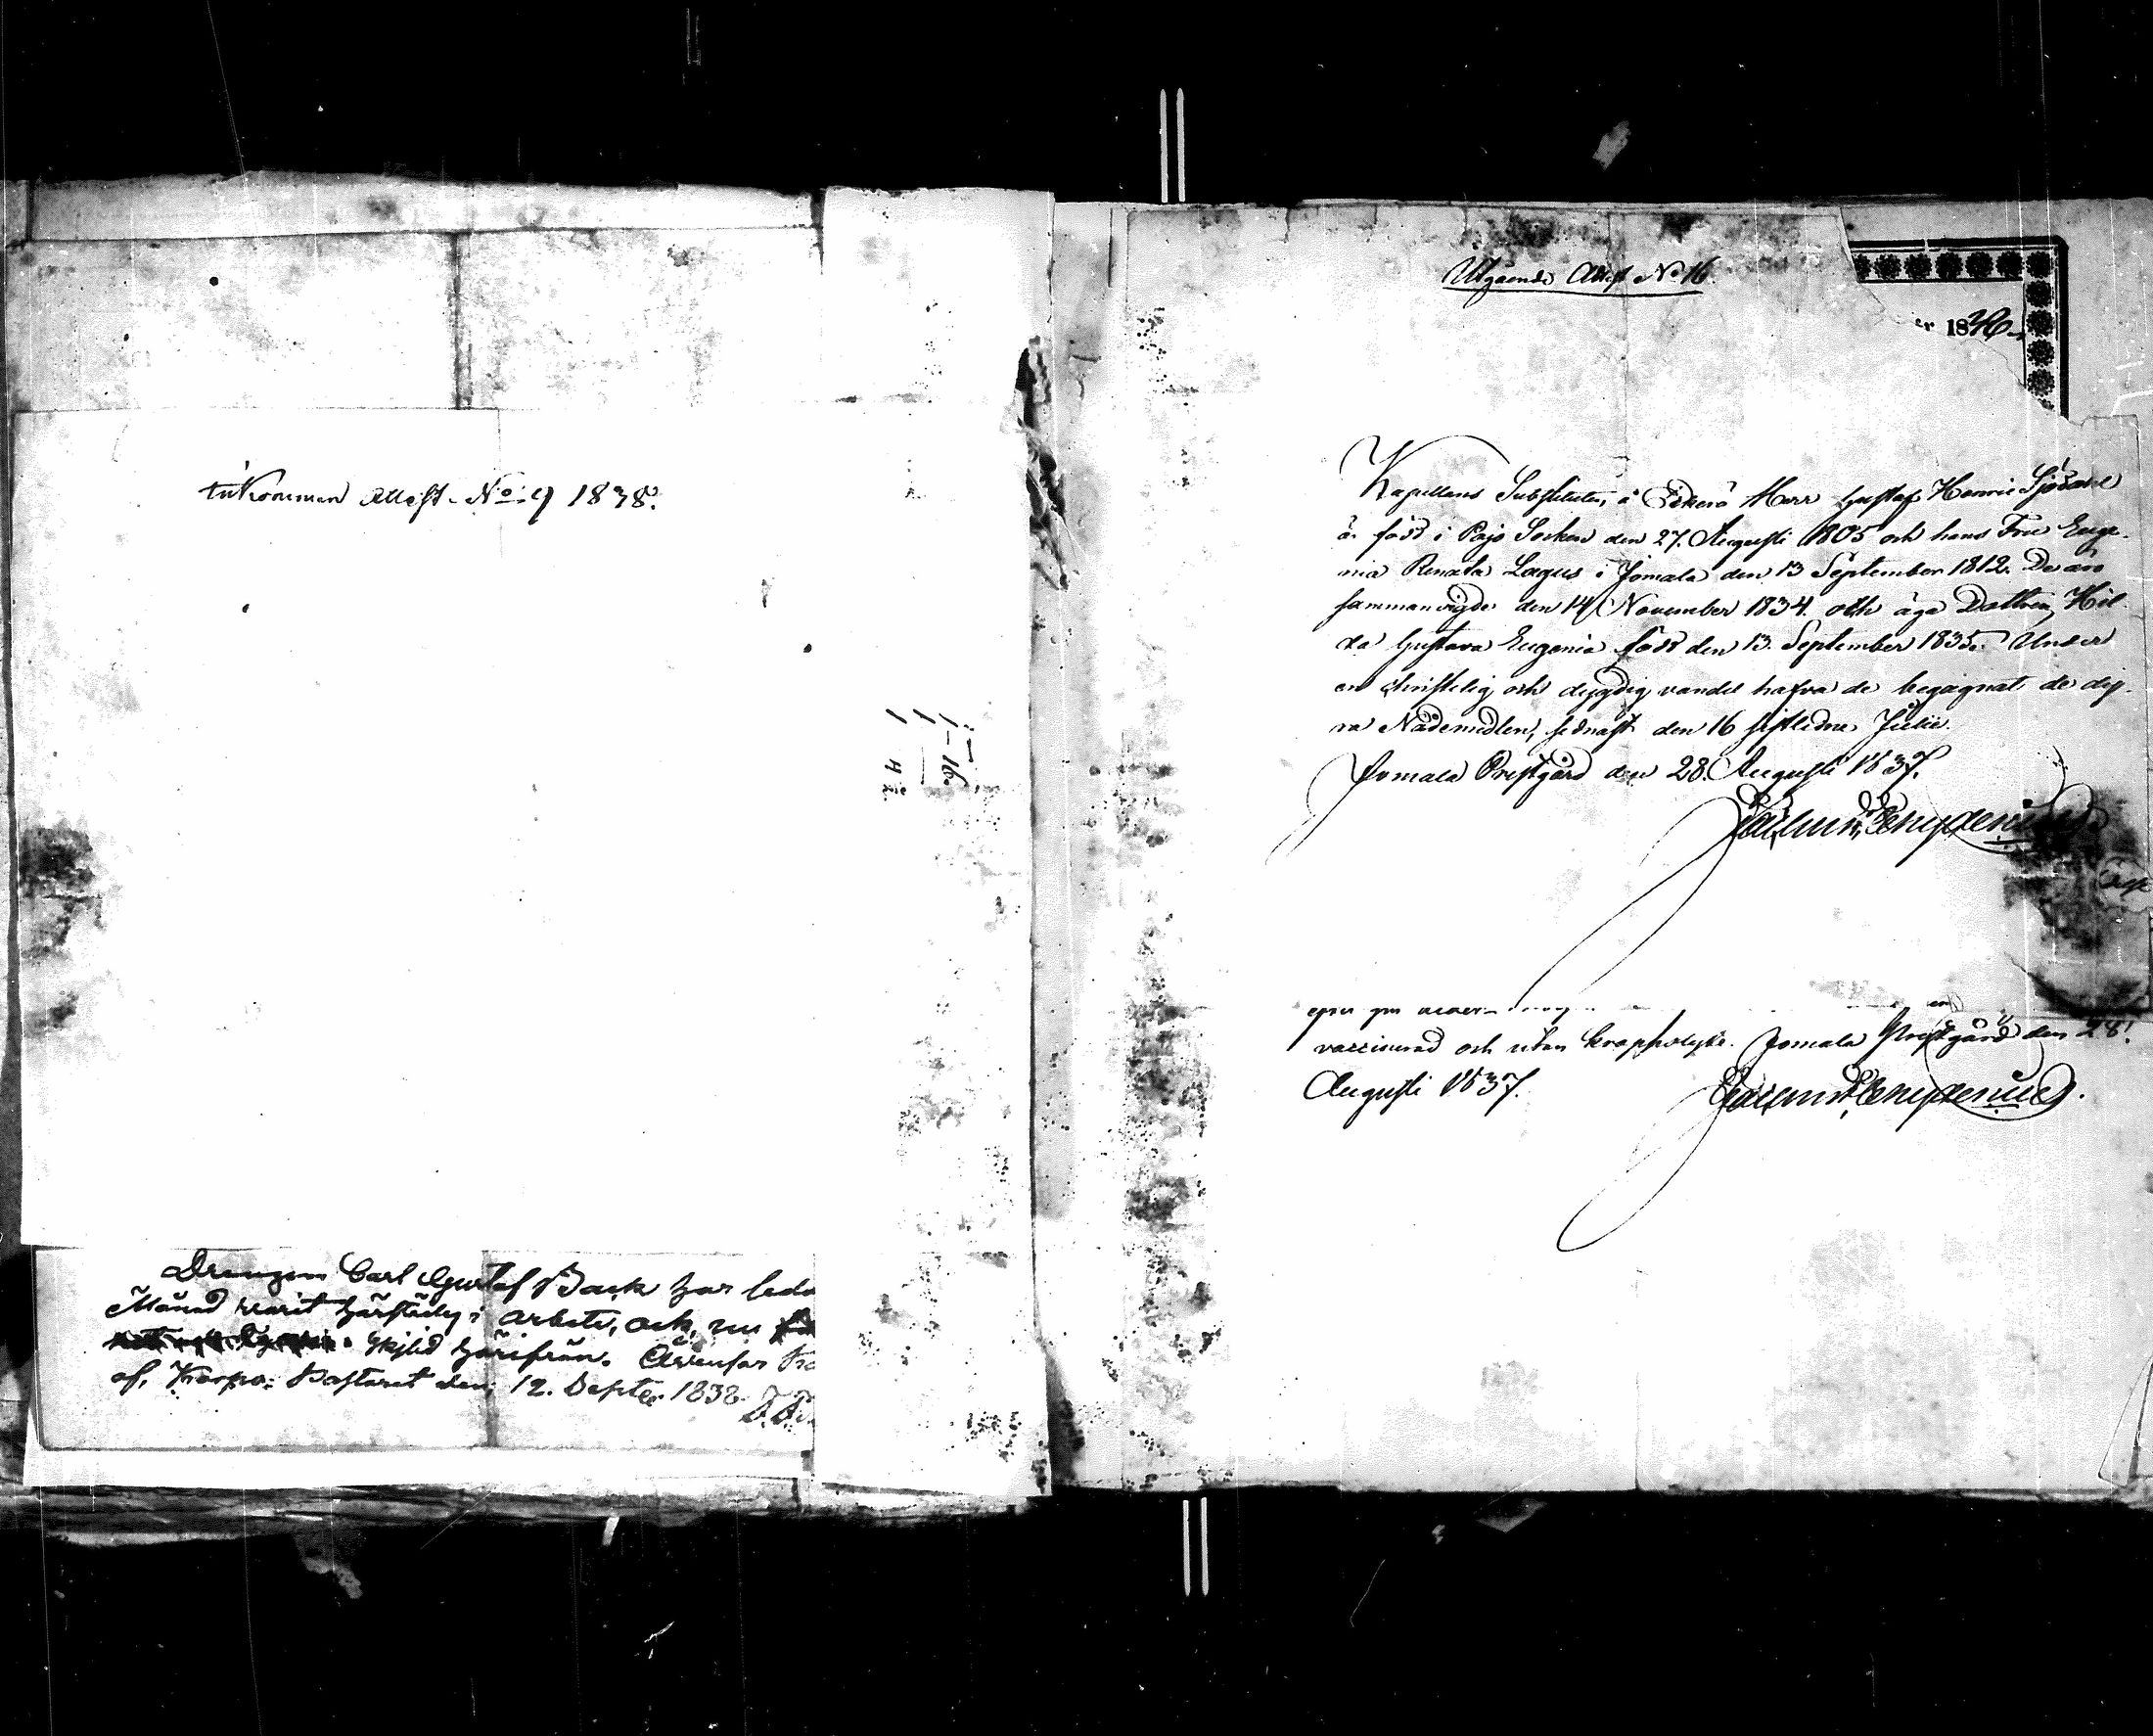 Inkommen Attest No 9 1838.
Drengen Carl Gustaf Back har seda
Månad warit härstädes i arbete, och, nu
skjild härifrån.
af, Korpo: Bastaret den 12. Septe. 1838.
Utgående Attest No 16.
1826
Kapellans Substituten, i Eckerö Herr Gustaf Henric
är född i Pojo Socken den 27. Augusti 1805 och hans Fru Euge-
nia Renata Lagus i Jomala den 13 September 1812. De äro
sammanvigde den 14 November 1834. och äga Dottren, Hil-
da Gustava Eugenia född den 13. September 1835. Under
en christelig och dygdig vandel hafva de begagnat de dy-
ra Nådemedlen, sednast den 16 sistledne Julii.
Jomala Prestgård den 28. Augusti 1837.
vaccinerad och utan kroppslyte. Jomala Prestgård den 28.
Augusti 1837.